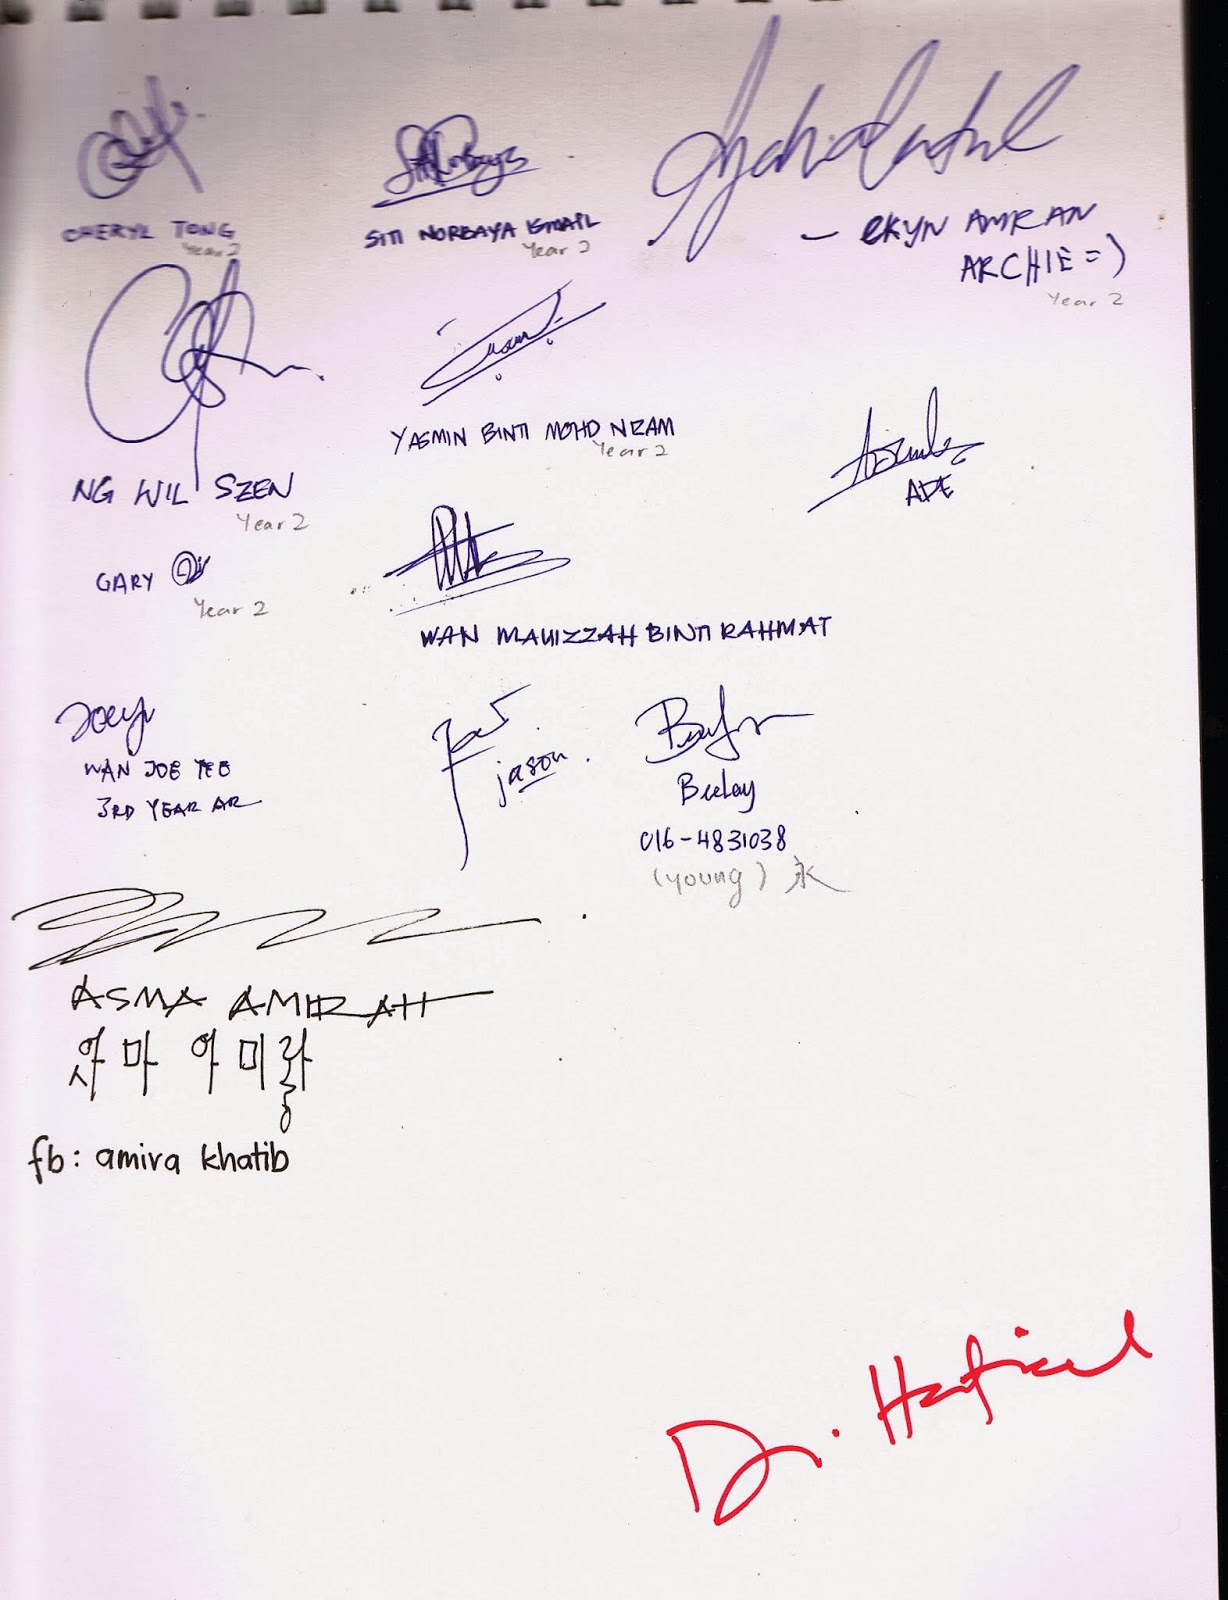 CHERYL TONG
Year 2
SITI NORBAYA ISMAIL
Year 2
- EKYN AMRAN
ARCHIE =)
Year 2
NG WIL SZEN
Year 2
YASMIN BINTI MOHD NIZAM
Year 2
ADE
GARY
Year 2
WAN MAUIZZAH BINTI RAHMAT
Joeyi
WAN JOE YEE
3RD YEAR AR
jason.
Beelay
016-4831038
(young) 永
ASMA AMIRAH
앗마 아미랗
fb: amira khatib
Dr. Hafizal